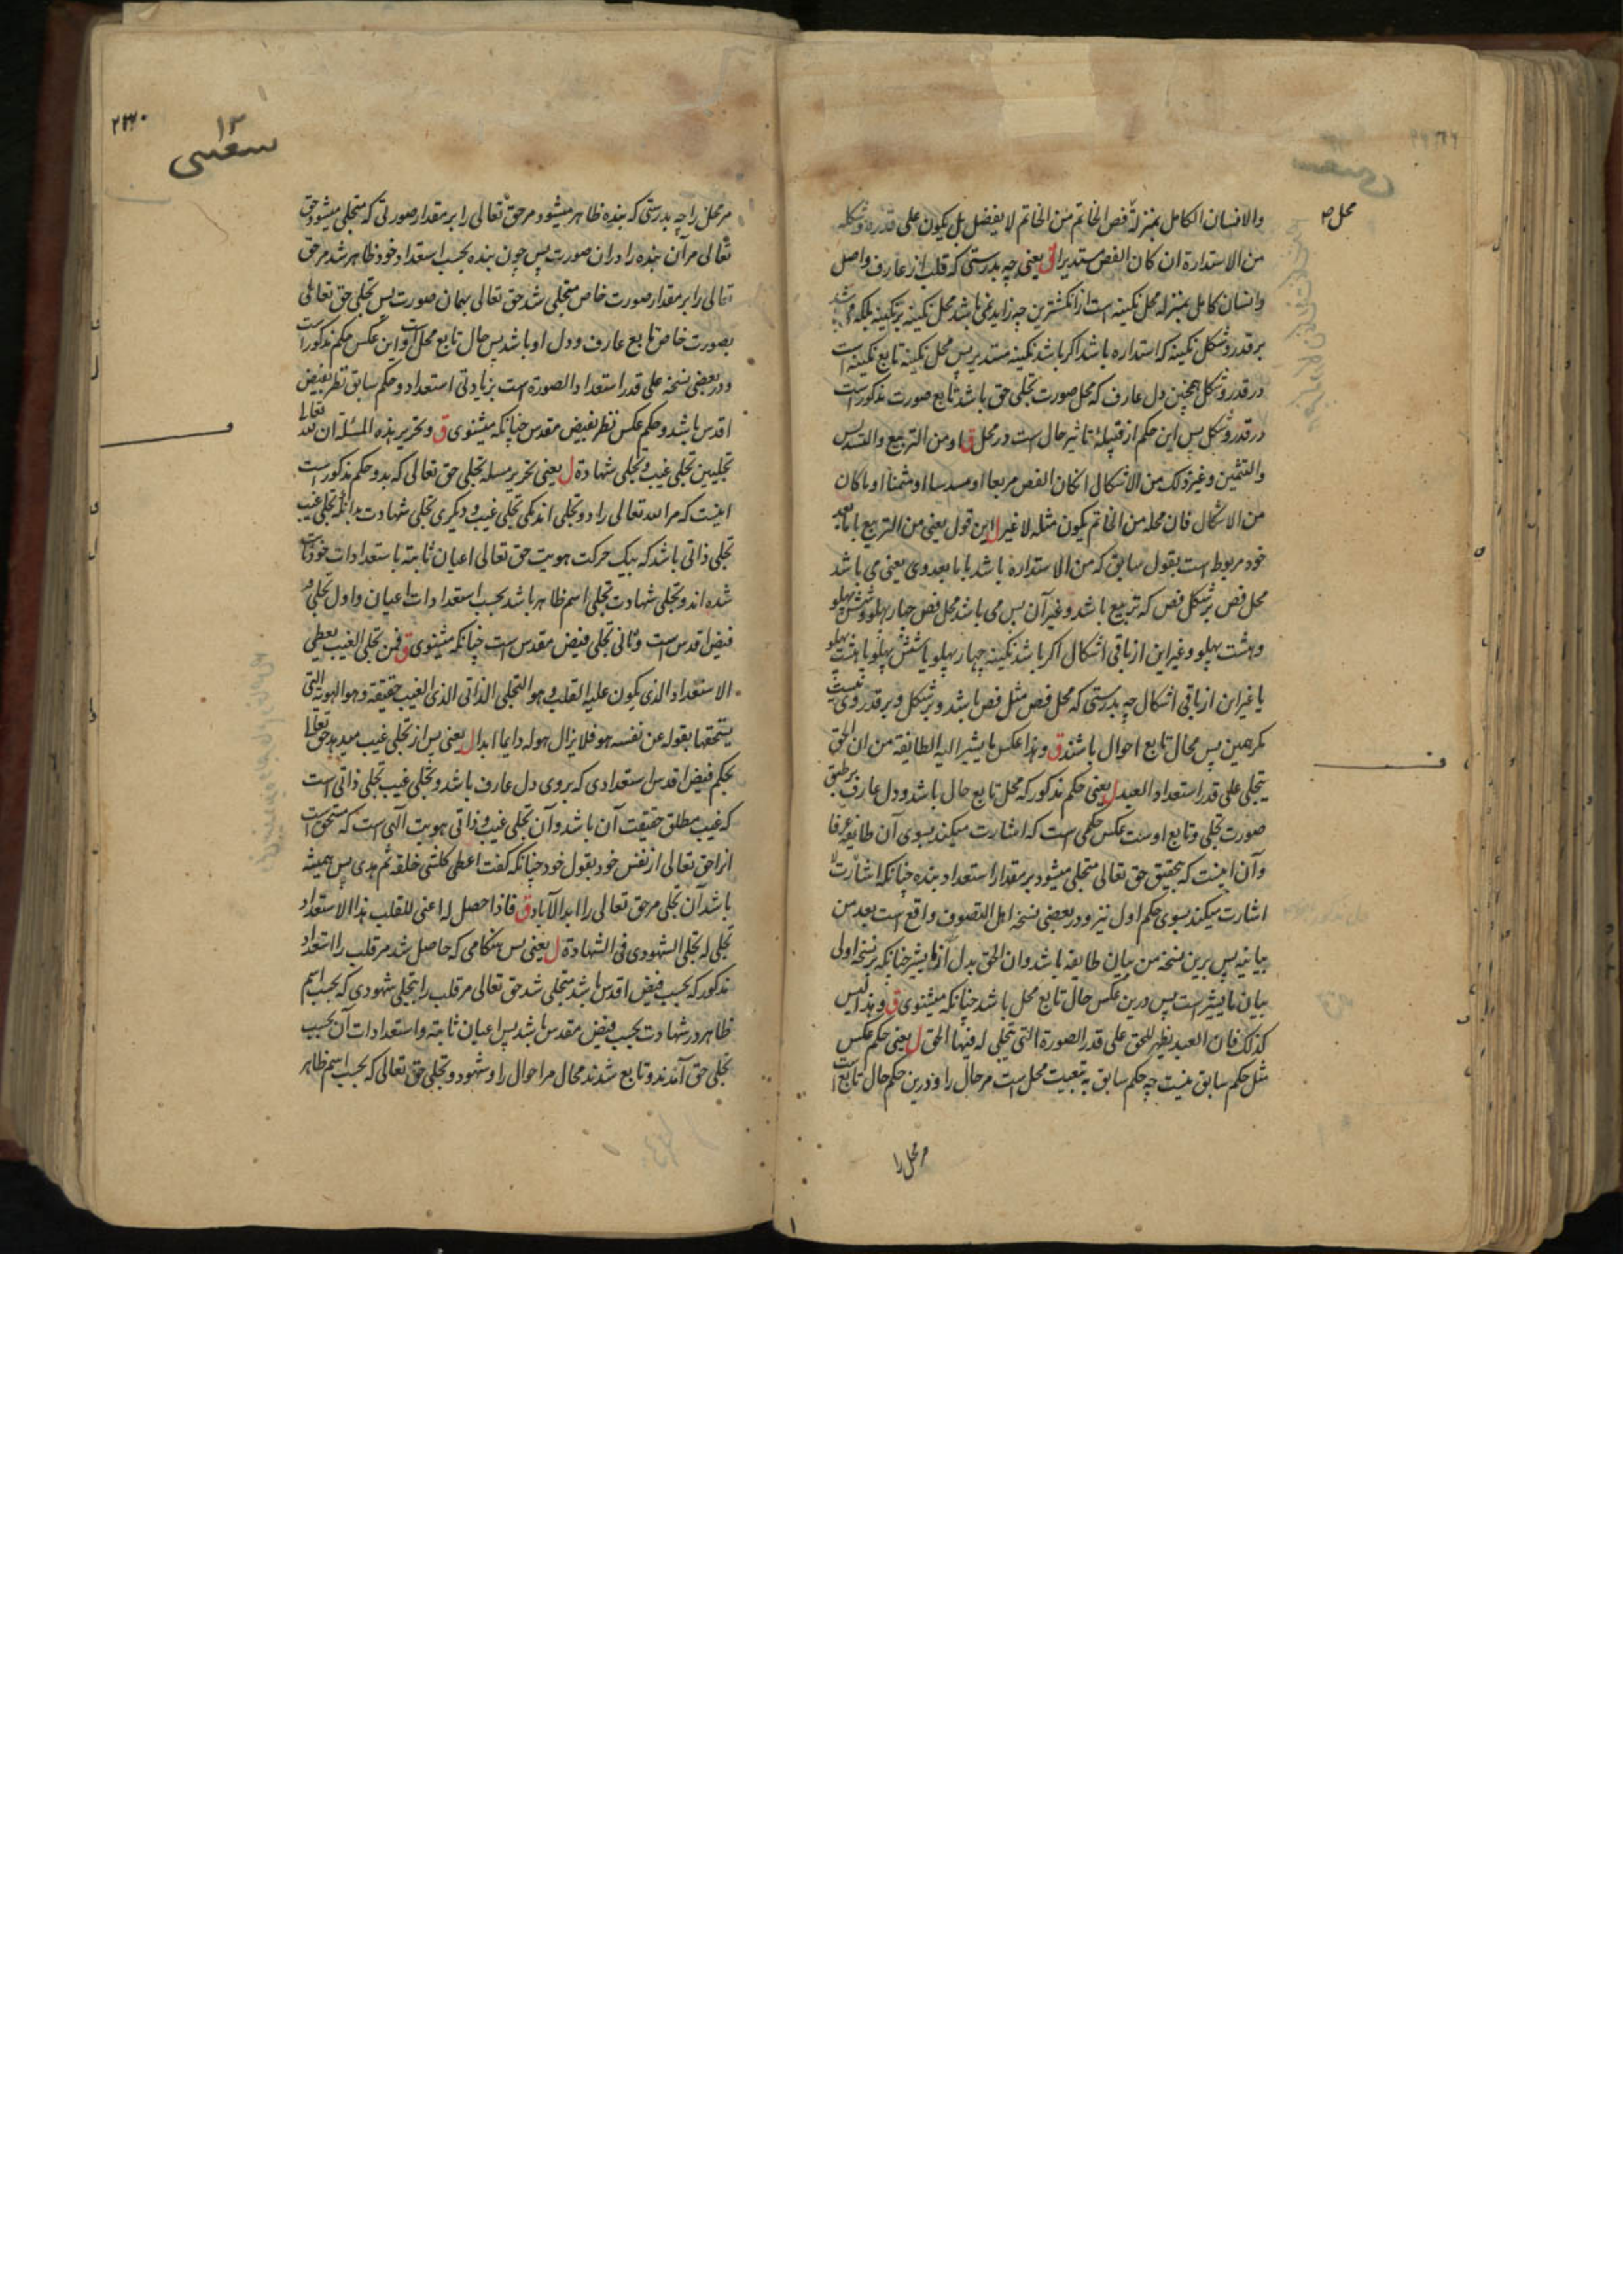 محل ص
والانسان الکامل بمنزلة فص الخاتم من الخاتم لا یفضل بل یکون علی قدره و شکله
من الاستدارة ان کان الفص مستدیرا یعنی چه بدرستی که قلب از عارف واصل
وانسان کامل بمنزله محل نکینه است از انکشترین چه زاید نمی باشد محل نکینه بر نکینه بلکه می باشد
بر قدر و شکل نکینه که استداره باشد اکر باشد نکینه مستدیر پس محل نکینه تابع نکینه است
در قدر و شکل همچنین دل عارف که محل صورت تجلی حق باشد تابع صورت مذکور است
در قدر و شکل پس این حکم از قبیله تاثیر حال است در محل ق او من التربیع والتسدیس
والتثمین وغیر ذلک من الاشکال انکان الفص مربعا او مسدسا او مثمنا او ما کان
من الاشکال فان محله من الخاتم یکون مثله لا غیر ل این قول یعنی من التربیع با مابعد
خود مربوط است بقول سابق که من الاستداره باشد با مابعد وی یعنی می باشد
محل فص بر شکل فص که تربیع باشد و غیر آن پس می باشد محل فص چهار پهلو و شش پهلو
و هشت پهلو و غیر این از باقی اشکال اکر باشد نکینه چهار پهلو یا شش پهلو یا هشت پهلو
یا غیر این از باقی اشکال چه بدرستی که محل فص مثل فص باشد و بر شکل و بر قدر وی نیست
مکر همین پس محال تابع احوال باشند ق وهذا عکس ما یشیر الیه الطایفة من ان الحق
یتجلی علی قدر استعداد العبد ل یعنی حکم مذکور که محل تابع حال باشد و دل عارف بر طبق
صورت تجلی و تابع اوست عکس حکمی است که اشارت میکند بسوی آن طایفه عرفا
وآن اینست که بتحقیق حق تعالی متجلی میشود بر مقدار استعداد بنده چنانکه اشارت
اشارت میکند بسوی حکم اول نیز و در بعضی نسخه اهل التصوف واقع است بعد من
بیانیه پس برین نسخه من بیان طایفه باشد وان الحق بدل از ما یشیر چنانکه بر نسخه اولی
بیان ما یشیر است پس درین عکس حال تابع محل باشد چنانکه میشنوی ق وهذا لیس
کذلک فان العبد یظهر للحق علی قدر الصورة التی یتجلی له فیها الحق ل یعنی حکم عکس
مثل حکم سابق نیست چه حکم سابق به تبعیت محل است مر حال را و درین حکم حال تابع است
مر محل را
۲۳۰
۱۳
مر محل را چه بدرستی که بنده ظاهر میشود مر حق تعالی را بر مقدار صورتی که متجلی میشود حق
تعالی مر آن بنده را دران صورت پس چون بنده بحسب استعداد خود ظاهر شد مر حق
تعالی را بر مقدار صورت خاص متجلی شد حق تعالی بهمان صورت پس تجلی حق تعالی
بصورت خاص تابع عارف و دل او باشد پس حال تابع محل است و این عکس حکم مذکور است
و در بعضی نسخه علی قدر استعداد الصورة است بزیادتی استعداد و حکم سابق نظر بفیض
اقدس باشد و حکم عکس نظر بفیض مقدس چنانکه میشنوی ق و تحریر هذه المسئلة ان لله تعالی
تجلیین تجلی غیب و تجلی شهادة ل یعنی تحریر مسله تجلی حق تعالی که بدو حکم مذکور است
اینست که مر الله تعالی را دو تجلی اند یکی تجلی غیب و دیکری تجلی شهادت بدانکه تجلی غیب
تجلی ذاتی باشد که بیک حرکت هویت حق تعالی اعیان ثابته با استعدادات خود ثابت
شده اند و تجلی شهادت تجلی اسم ظاهر باشد بحسب استعدادات اعیان و اول تجلی
فیض اقدس است و ثانی تجلی فیض مقدس است چنانکه میشنوی ق فمن تجلی الغیب یعطی
الاستعداد الذی یکون علیه القلب وهو التجلی الذاتی الذی الغیب حقیقته وهو الهویة التی
یستحقها بقوله عن نفسه هو فلا یزال هو له دایما ابدا ل یعنی پس از تجلی غیب میدهد حق تعالی
بحکم فیض اقدس استعدادی که بروی دل عارف باشد و تجلی غیب تجلی ذاتی است
که غیب مطلق حقیقت آن باشد وآن تجلی غیب و ذاتی هویت الهی است که مستحق است
انرا حق تعالی از نفس خود بقول خود چنانکه کفت اعطی کل شی خلقه ثم هدی پس همیشه
باشد آن تجلی مر حق تعالی را ابد الآباد ق فاذا حصل له اعنی للقلب هذا الاستعداد
تجلی له تجلی الشهودی فی الشهادة ل یعنی پس هنکامی که حاصل شد مر قلب را استعداد
مذکور که بحسب فیض اقدس باشد متجلی شد حق تعالی مر قلب را بتجلی شهودی که بحسب اسم
ظاهر در شهادت بحسب فیض مقدس باشد پس اعیان ثابته و استعدادات آن بحسب
تجلی حق آمدند و تابع شدند محال مر احوال را و شهود و تجلی حق تعالی که بحسب اسم ظاهر